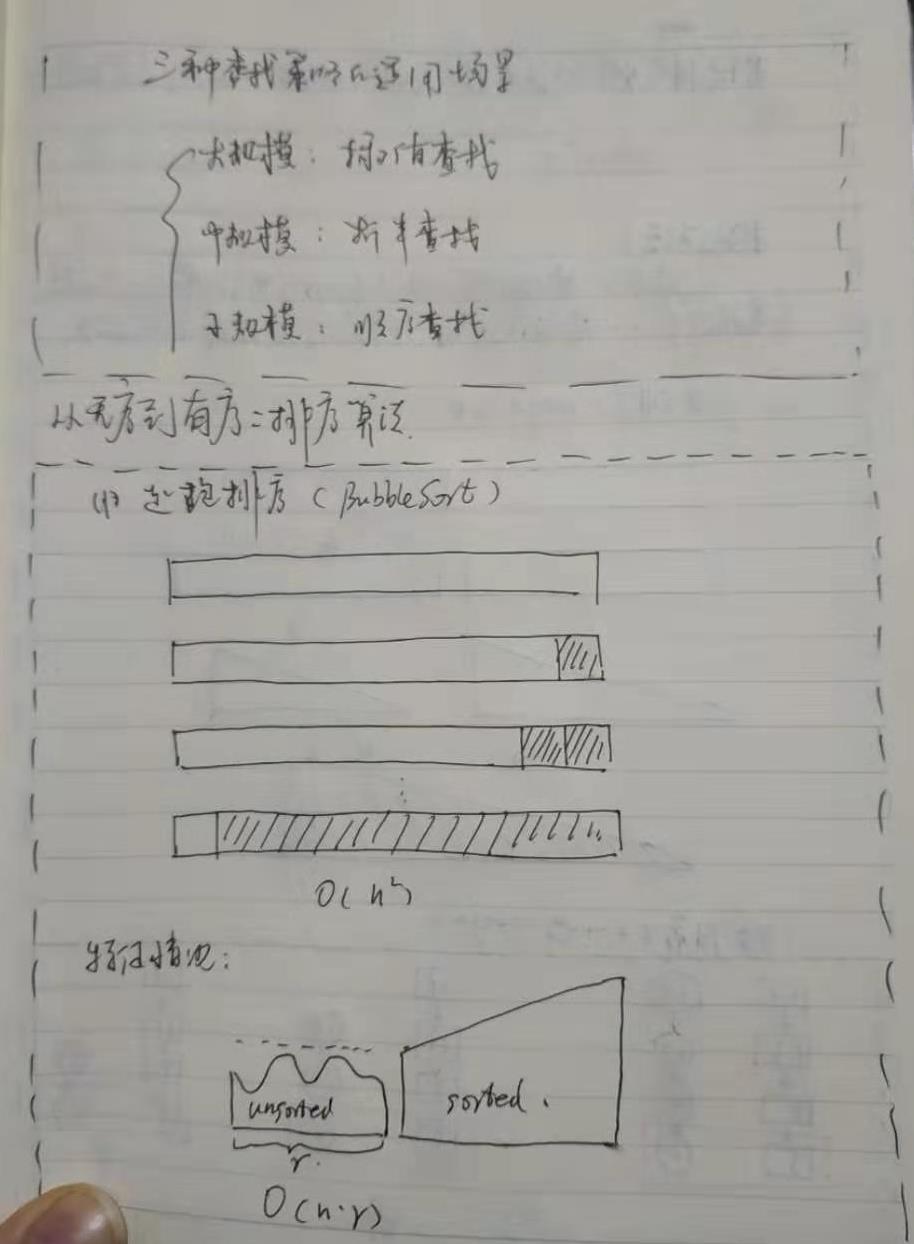 三种查找策略的适用场景
大规模：插值查找
中规模：折半查找
小规模：顺序查找
从无序到有序：排序算法.
(1) 起泡排序（BubbleSort）
⋮
O(n²)
特征情况：
unsorted
sorted.
r.
O(n·r)